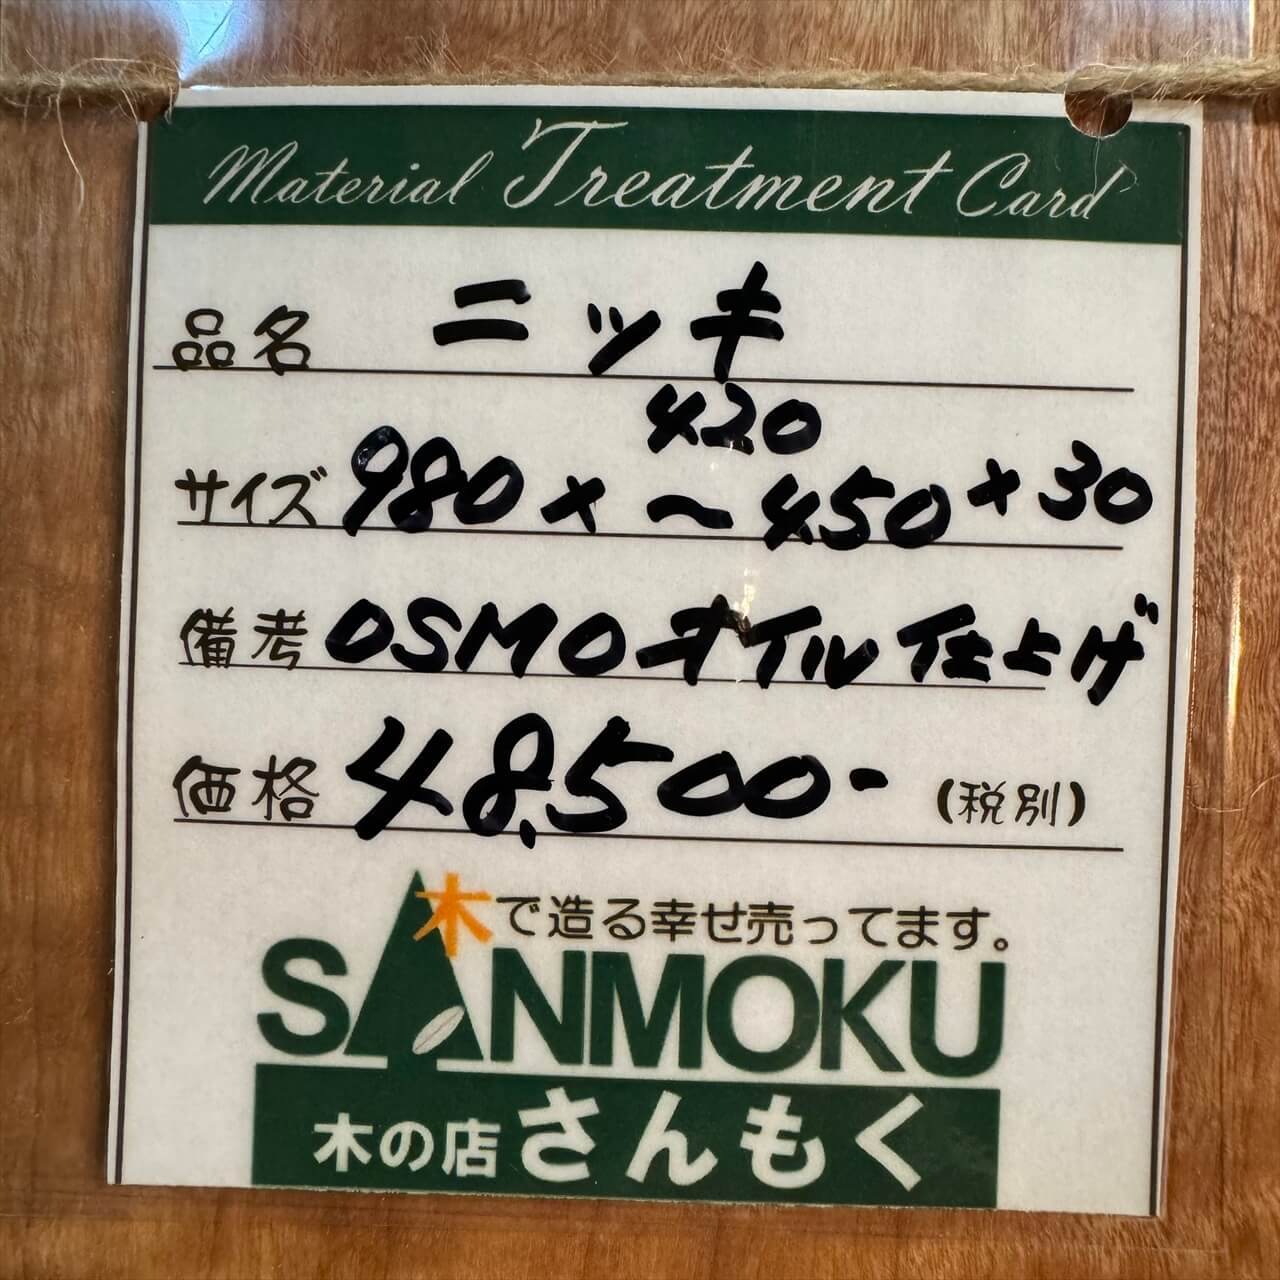 Material Treatment Card
品名 ニッキ
420
サイズ 980 × ～450 × 30
備考 OSMOオイル仕上げ
価格 48,500- (税別)
木で造る幸せ売ってます。
SANMOKU
木の店さんもく